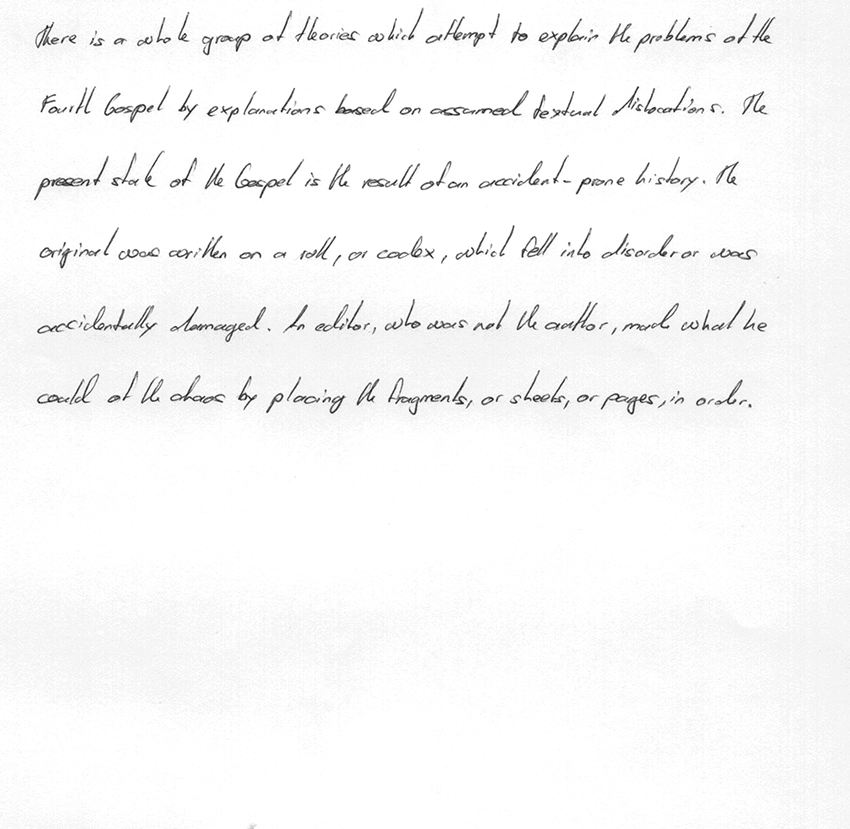 There is a whole group of theories which attempt to explain the problems of the
Fourth Gospel by explanations based on assumed textual dislocations. The
present state of the Gospel is the result of an accident-prone history. The
original was written on a roll, or codex, which fell into disorder or was
accidentally damaged. An editor, who was not the author, made what he
could of the chaos by placing the fragments, or sheets, or pages, in order.